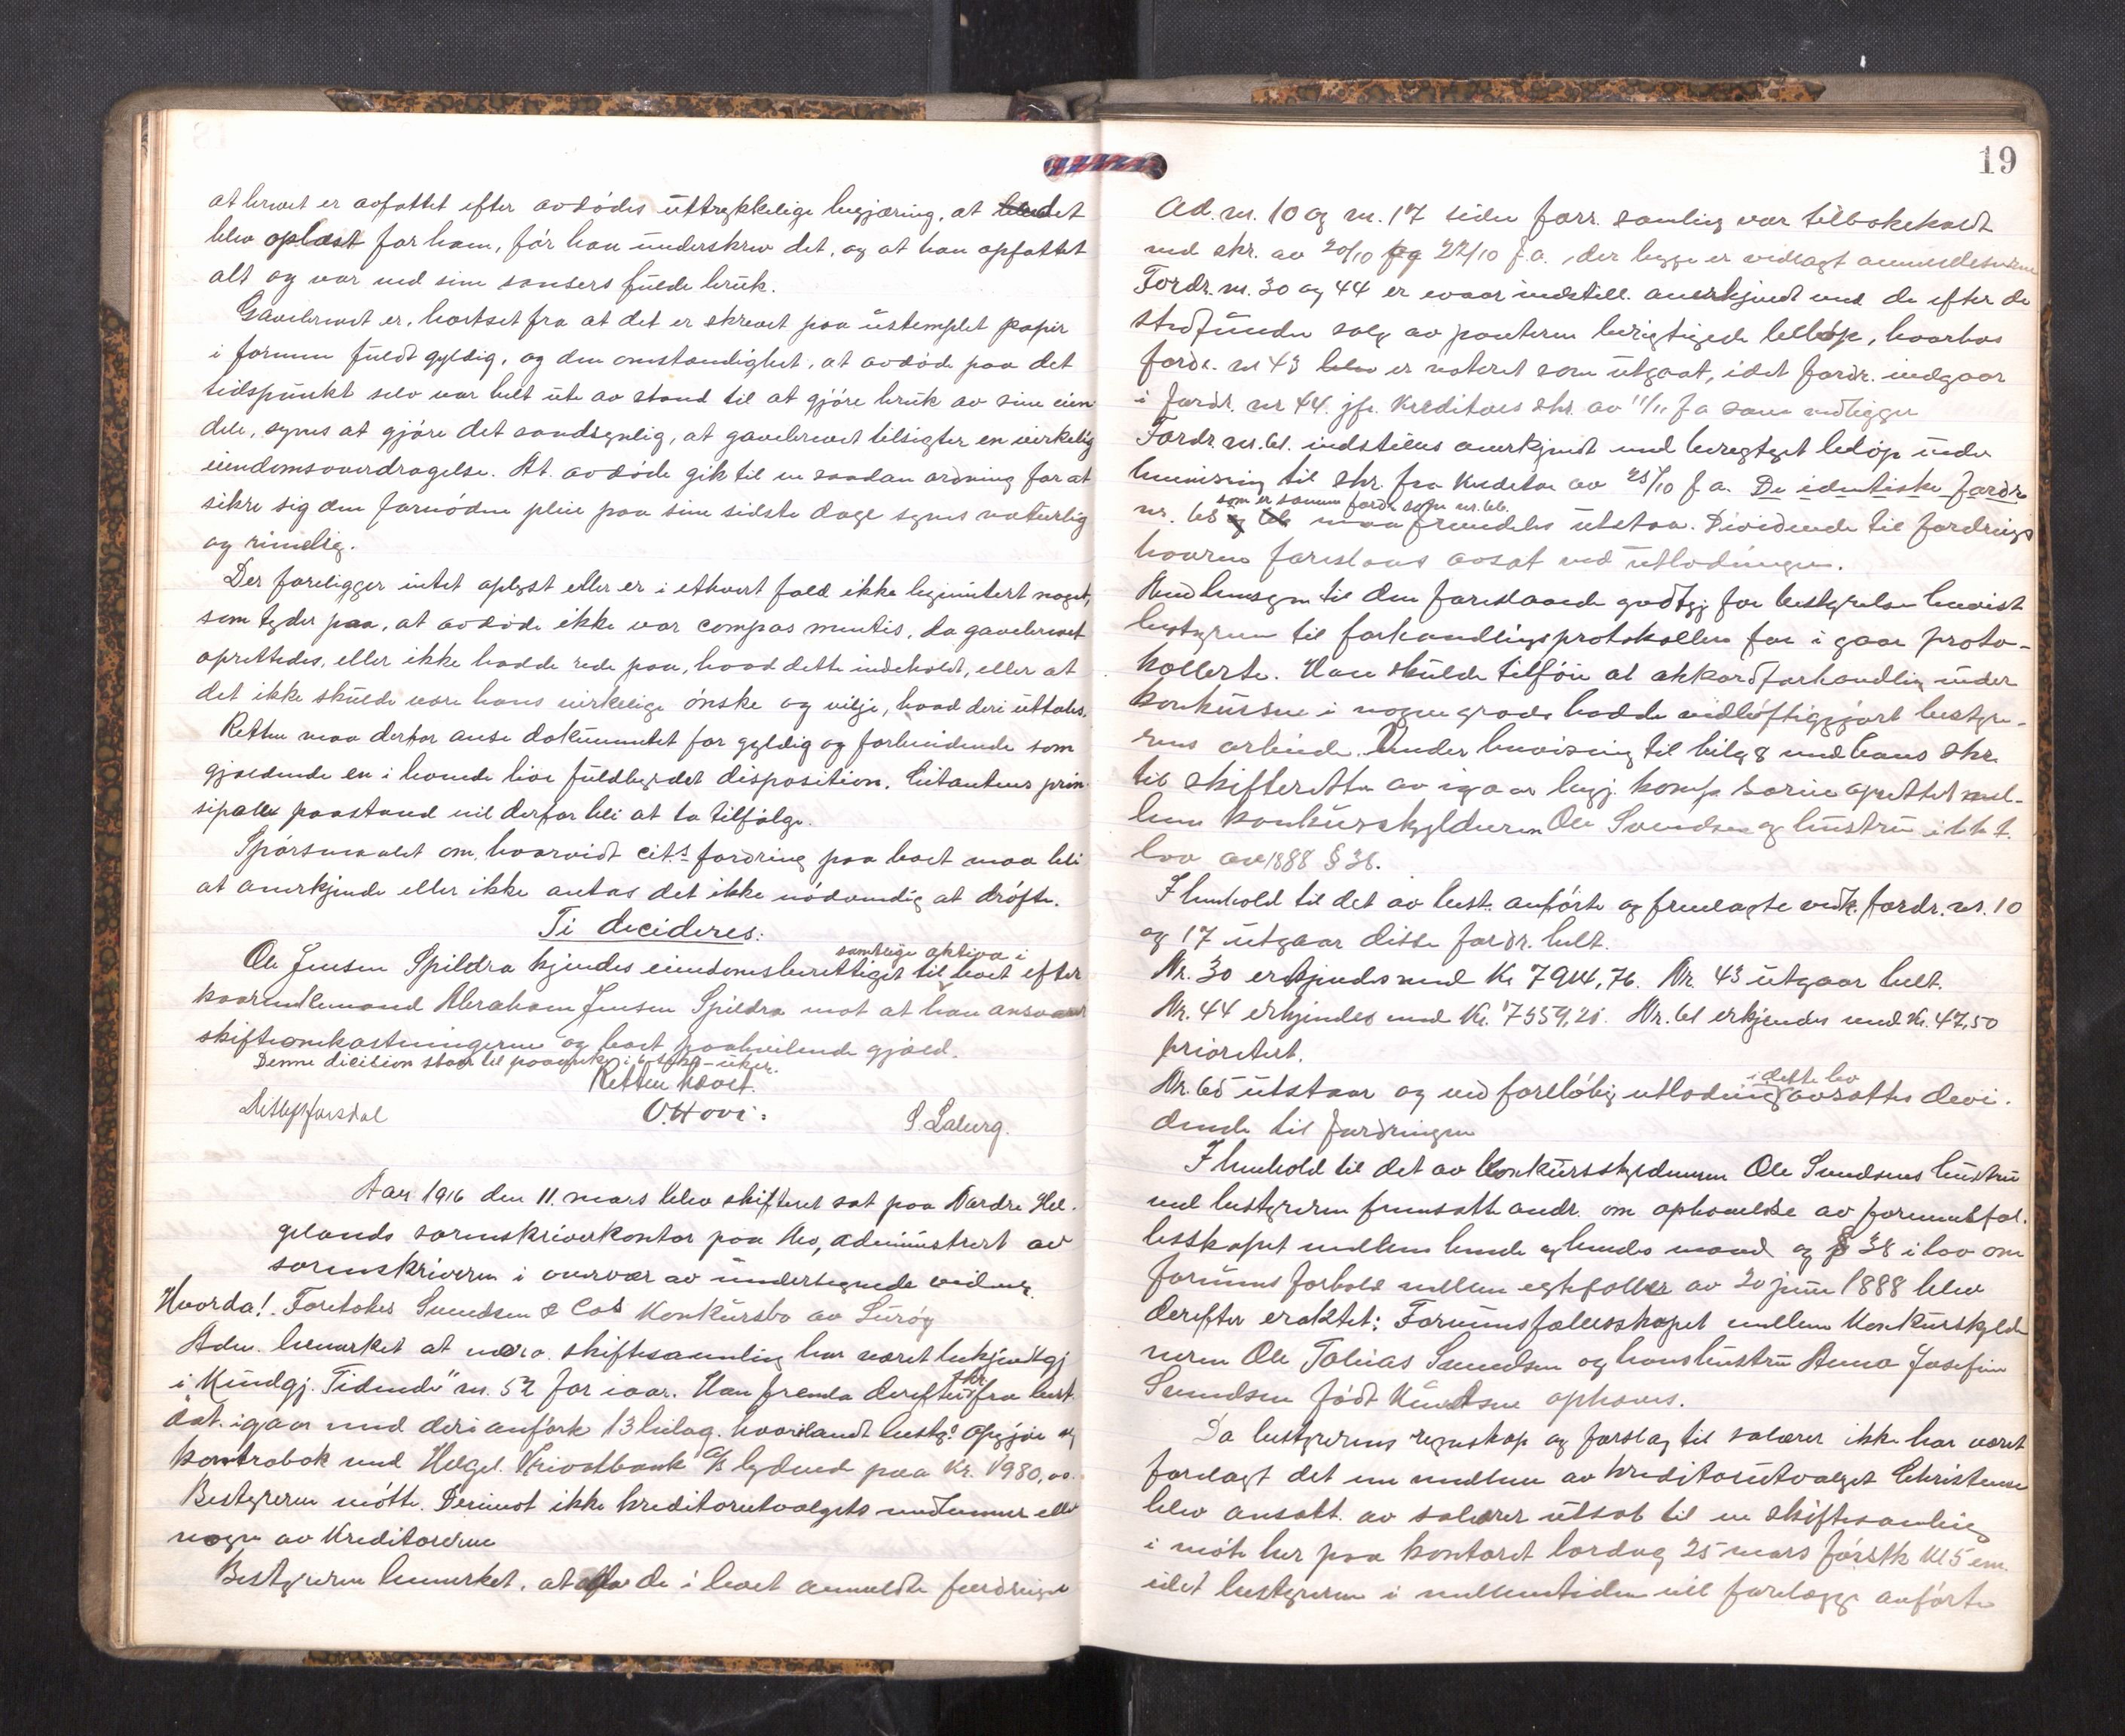 at brevet er avfattet efter avdødes uttrykkelige begjæring, at det
blev oplæst for ham, før han underskrev det, og at han opfattet
alt og var ved sine sansers fulde bruk.
Gavebrevet er, bortset fra at det er skrevet paa ustemplet papir
i formen fuldt gyldig, og den omstændighet, at avdøde paa det
tidspunkt selv var helt ute av stand til at gjøre bruk av sine eien-
dele, synes at gjøre det sandsynlig, at gavebrevet tilsigter en virkelig
eiendomsoverdragelse. At avdøde gik til en saadan ordning for at
sikre sig den fornødne pleie paa sine sidste dage synes naturlig
og rimelig.
Der foreligger intet oplyst eller er i ethvert fald ikke legimitert noget,
som tyder paa, at avdøde ikke var compos mentis, da gavebrevet
oprettedes, eller ikke hadde rede paa, hvad dette indeholdt, eller at
det ikke skulde være hans virkelige ønske og vilje, hvad deri uttales.
Retten maa derfor anse dokumentet for gyldig og forbindende som
gjældende en i levende live fuldbyrdet disposition. Citantens prin-
sipale paastand vil derfor bli at ta tilfølge.
Spørsmaalet om, hvorvidt cit.s fordring paa boet maa bli
at anerkjende eller ikke antas det ikke nødvendig at drøfte.
Ti decideres:
samtlige aktiva i
Ole Jensen Spildra kjendes eiendomsberettiget til boet efter
kaarenkemand Abraham Jensen Spildra mot at han ansvarer
skifteomkastningerne og boet paahvilende gjæld.
Denne dicition staar til paaanke i 6 seks - uker.
Retten hævet.
Ditlefforsdal
O. Hovi:
S. Laberg.
Aar 1916 den 11. mars blev skifteret sat paa Nordre Hel-
gelands sorenskriverkontor paa Mo, administrert av
sorenskriveren i overvær av undertegnede vidner.
Hvorda! Foretokes Svendsen & Cos Konkursbo av Lurøy
Adm. bemerket at nærv. skiftesamling har været bekjendtgj
i "Kundgj. Tidende" nr. 52 for iaar. Han fremla derefter skr. fra best.
dat. igaar med deri anførte 13 bilag. hvoriblandt best.s opgjør og
kontrabok med Helgel. Privatbank A/S lydende paa Kr. 1980,00.
Bestyreren møtte. Derimot ikke kreditorutvalgets medlemmer eller
nogen av Kreditorerne
Bestyreren bemerket, at av de i boet anmeldte fordringer
19
Ad. nr. 10 og nr. 17 siden forr. samling var tilbakekaldt
ved skr. av 20/10 og 22/10 f.a., der begge er vedlagt anmeldelserne
Fordr. nr. 30 og 44 er hvor indstill. anerkjendt med de efter de
stedfundne salg av panterne berigtigede beløp, hvorhos
fordr. nr 43 er noteret som utgaat, idet fordr. indgaar
i fordr. nr 44. jfr. Kreditors skr. av 11/11 f a som vedligger
Fordr. nr. 61. indstilles anerkjendt med beregtiget beløp under
henvisning til skr. fra Kreditor av 25/10 f. a. De identiske fordr
som er samme fordr som nr. 66.
nr. 65 maa fremdeles utstaa. Dividende til fordrings
haverne foreslaaes avsat ved utlodningen.
Med hensyn til den foreslaaede godtgj for bestyrelse henvist
bestyreren til forhandlingsprotokollen for i gaar proto-
kollerte. Han skulde tilføie at akkordforhandling under
konkursen i nogen grad hadde vidløftiggjort bestyre-
rens arbeide. Under henvisning til bilg 8 med hans skr.
til skifteretten av igaar begj. særeie oprettet mel-
lem konkursskylderen Ole Svendsen og hustru i h. t.
lov av 1888 § 38.
I henhold til det av best. anførte og fremlagte vedk. fordr. nr. 10
og 17 utgaar disse fordr. helt.
Nr. 30 erkjendes med Kr 7914,76. Nr. 43 utgaar helt.
Nr. 44 erkjendes med Kr. 7559,20. Nr. 61 erkjendes med Kr. 47,50
prioritert.
i dette bo
Nr. 65 utstaar og ved foreløbig utlodning avsættes devi-
dende til fordringen
I henhold til det av Konkursskyldneren Ole Svendsens hustru
ved bestyreren fremsatte andr. om ophævelse av formuesfæl-
lesskapet mellem hende og hendes mand og § 38 i lov om
formuesforhold mellem egtefæller av 20 juni 1888 blev
derefter eraktet: Formuesfællesskapet mellem Konkursskyld-
neren Ole Tobias Svendsen og hans hustru Anna Josefine
Svendsen født Knudsen ophæves.
Da bestyrerens regnskap og forslag til salærer ikke har været
forelagt det ene medlem av kreditorutvalget Christensen
blev ansætt. av salærer utsat til en skiftesamling
i møte her paa kontoret lørdag 25 mars førstk kl 5 em.
idet bestyreren i mellemtiden vil forelægge anførte